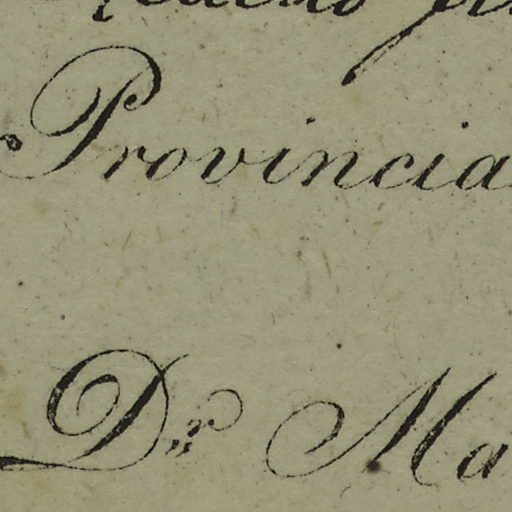 Provincia
Dr Ma